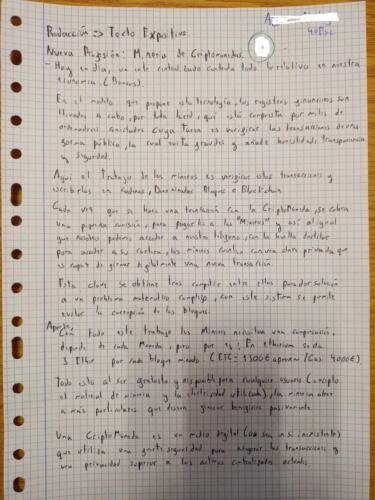 Redacción => Texto Expositivo.
4º ESO
Nueva Profesión: Minería de Criptomonedas.
Hoy en día, un ente centralizado controla todo lo relativo en nuestra
economía. (Bancos).
En el modelo que propone esta tecnología, los registros financieros son
llevados a cabo, por una red, que está compuesta por miles de
ordenadores conectados cuya tarea es verificar las transacciones de una
forma pública, la cual evita fraudes y añade transparencia
y seguridad.
Aquí el trabajo de los mineros es verificar estas transacciones y
escribirlas en cadenas, Bloques o Blockchain.
Cada vez que se hace una transacción con la CriptoMoneda, se cobra
una pequeña comisión, para pagarles a los "Mineros" y así al igual
que nosotros podemos acceder a nuestro teléfono, con la huella dactilar
para acceder a su cartera, los mineros una clave privada que
es capaz de generar digitalmente una nueva transacción.
Esta clave se obtiene tras competir entre ellos para dar solución
a un problema matemático complejo, con este sistema se permite
evitar la corrupción de los bloques.
Aparte,
Con todo este trabajo los Mineros necesitan una compensación,
depende de cada Moneda, pero por ej: En etherium se da
3 Ether por cada bloque minado (ETC = 1300€ aprox / Casi 4000€).
Todo esto al ser gratuito y disponible para cualquier usuario (excepto
el material de minería y la electricidad utilizada), la minería atrae
a más particulares que desean generar beneficios pasivamente
Una CriptoMoneda es un medio digital
que utiliza una gran seguridad para asegurar las transacciones y
una privacidad superior a los activos centralizados actuales.